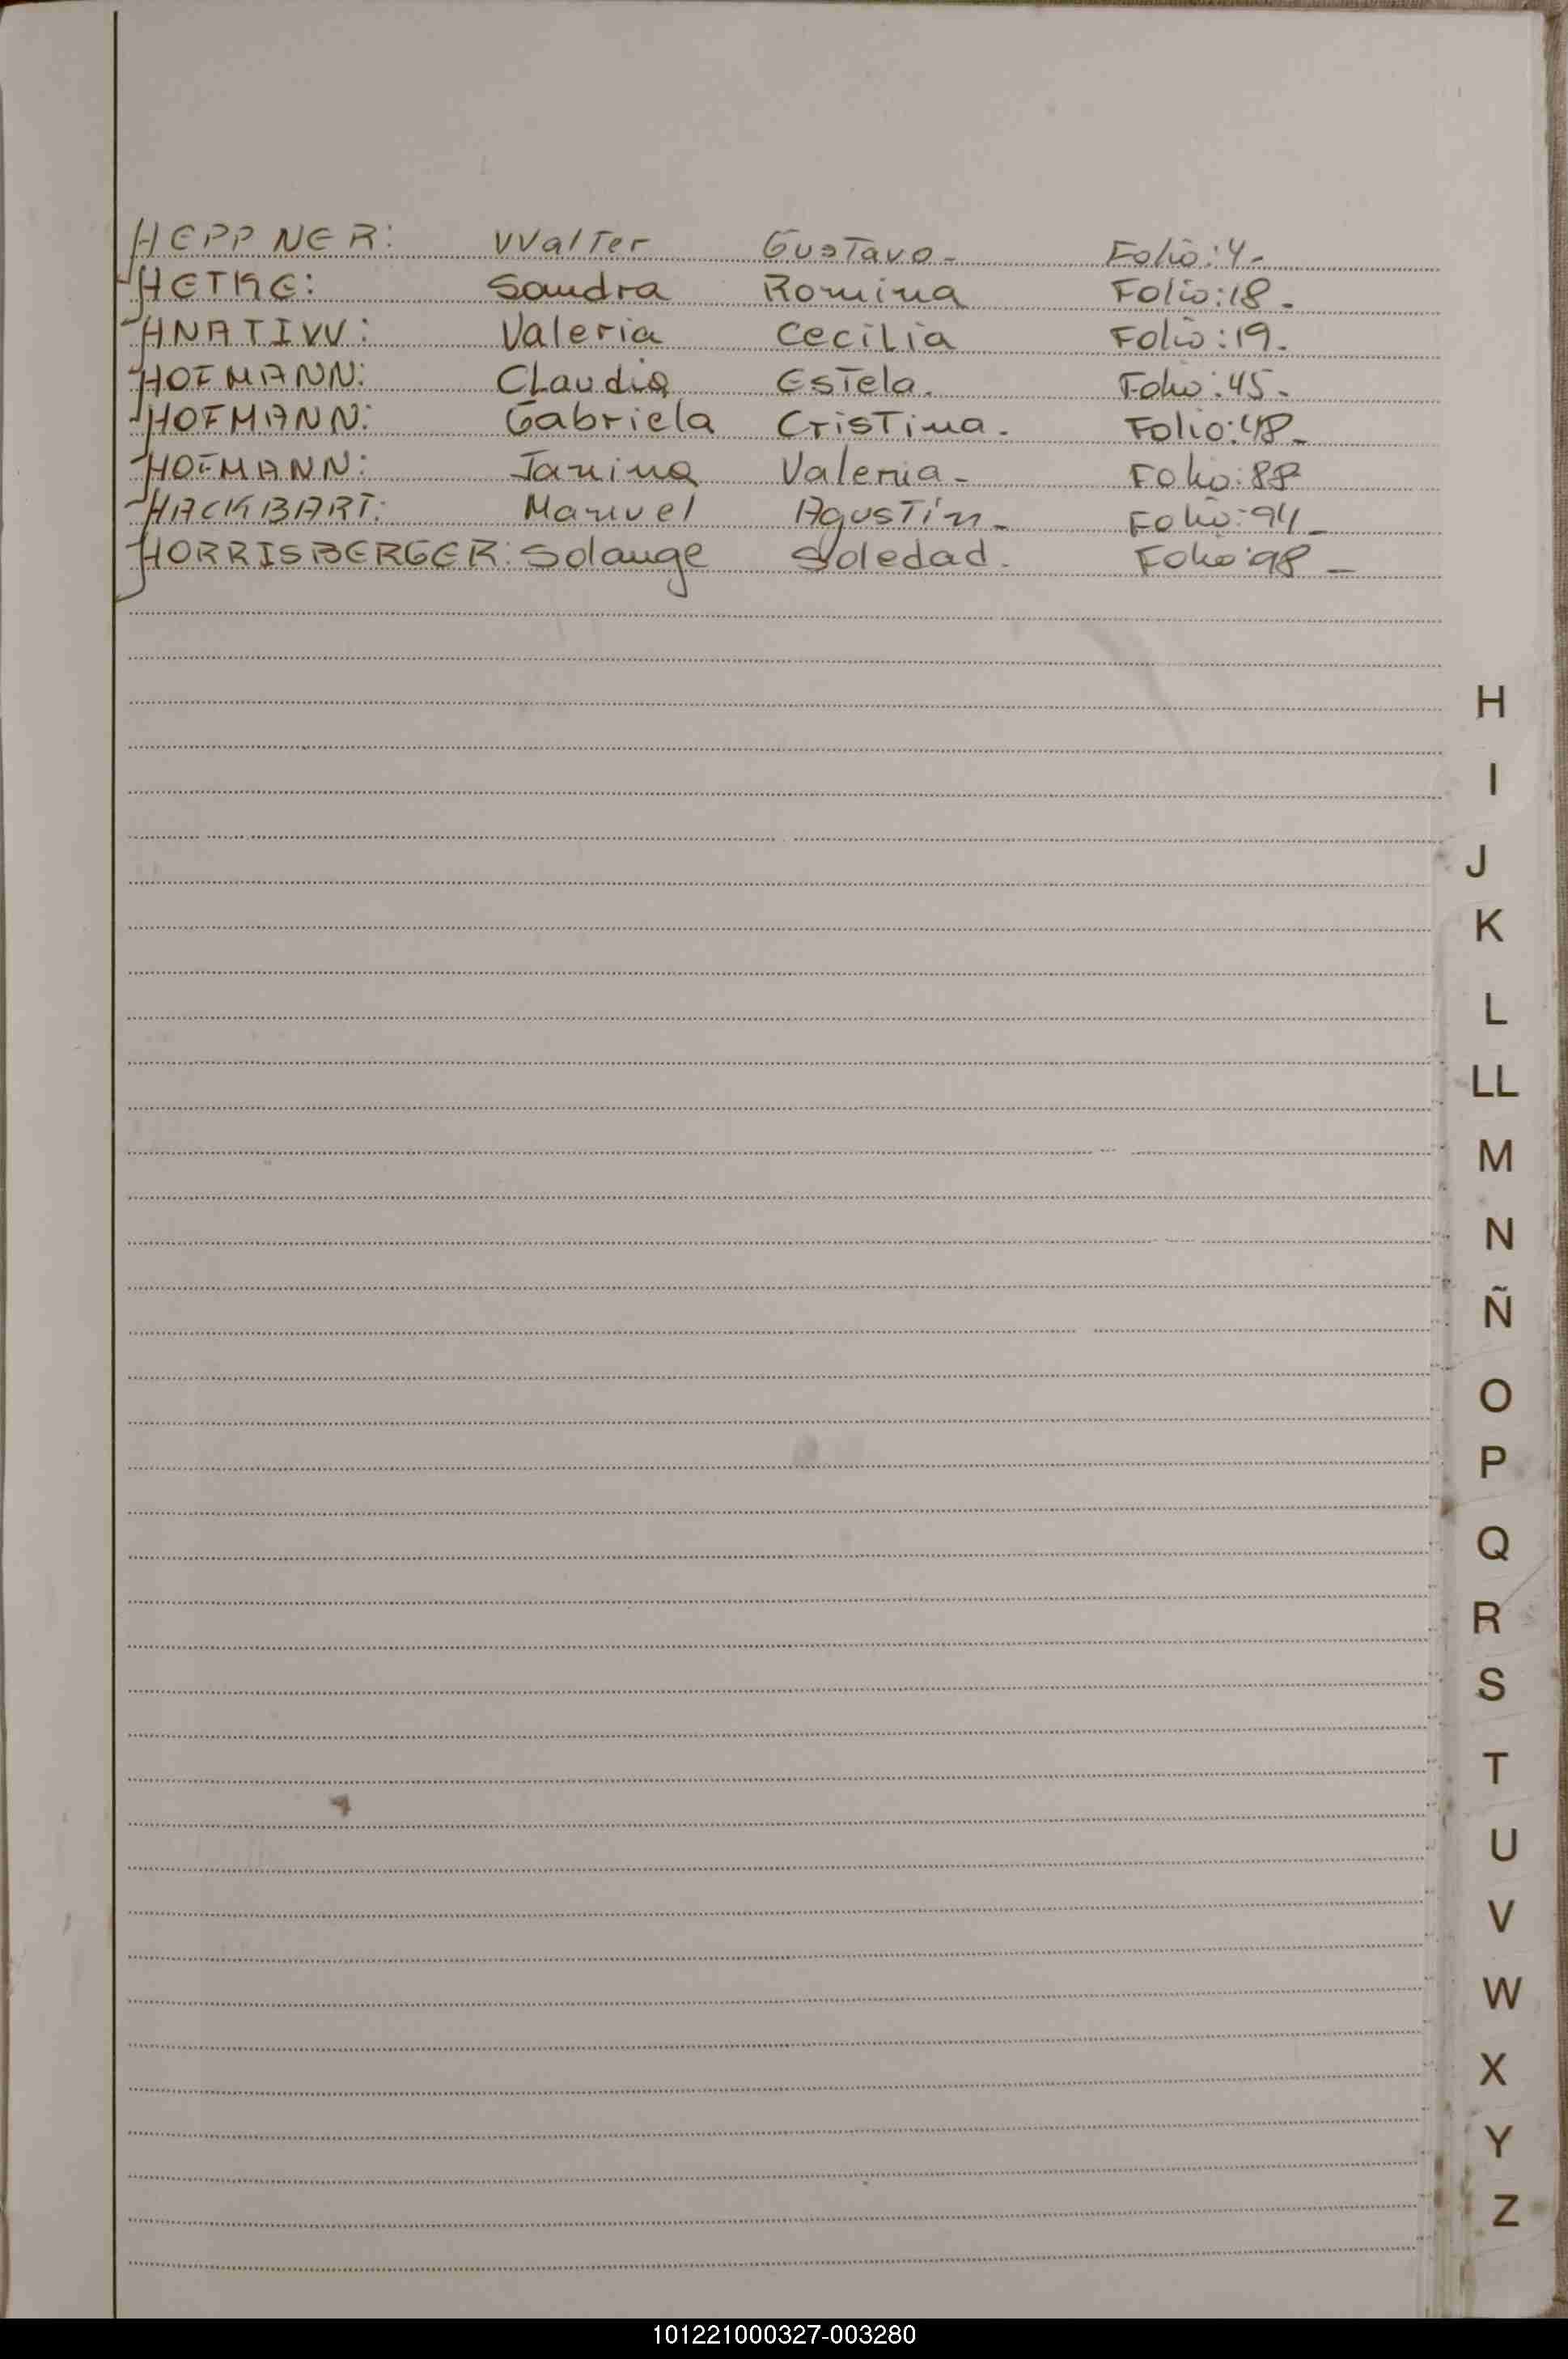 HEPPNER: Walter Gustavo - Folio: 4 -
HETKE: Sandra Romina Folio: 18 -
HNATIW: Valeria Cecilia Folio: 19 -
HOFMANN: Claudia Estela. Folio: 45 -
HOFMANN: Gabriela Cristina. Folio: 48 -
HOFMANN: Janina Valeria - Folio: 88
HACKBART: Manuel Agustín - Folio: 94 -
HORRISBERGER: Solange Soledad. Folio: 98 -
H
I
J
K
L
LL
M
N
Ñ
O
P
Q
R
S
T
U
V
W
X
Y
Z
101221000327-003280